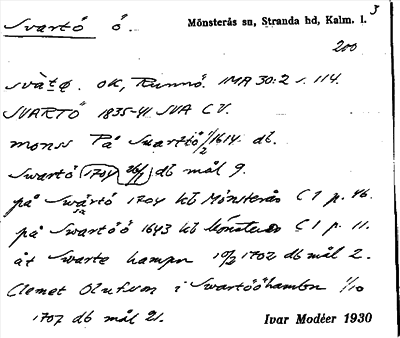 Svartö ö. Mönsterås sn, Stranda hd, Kalm. l. 3
200
svàtø. Ok, Runnö. IMA 30:2 s. 114.
SVARTÖ 1835-41 SVA C V.
monss På Suartöö 1/2 1614 db.
Swartö 1704 26/1 db mål 9.
på Swartö 1704 kb Mönsterås C 1 p. 46.
på Swartöö 1643 kb Mönsterås C 1 p. 11.
åt Swarte hampn 10/2 1702 db mål 2.
Clemet Olufson i Swartööhambn 1/10
1707 db mål 21. Ivar Modéer 1930